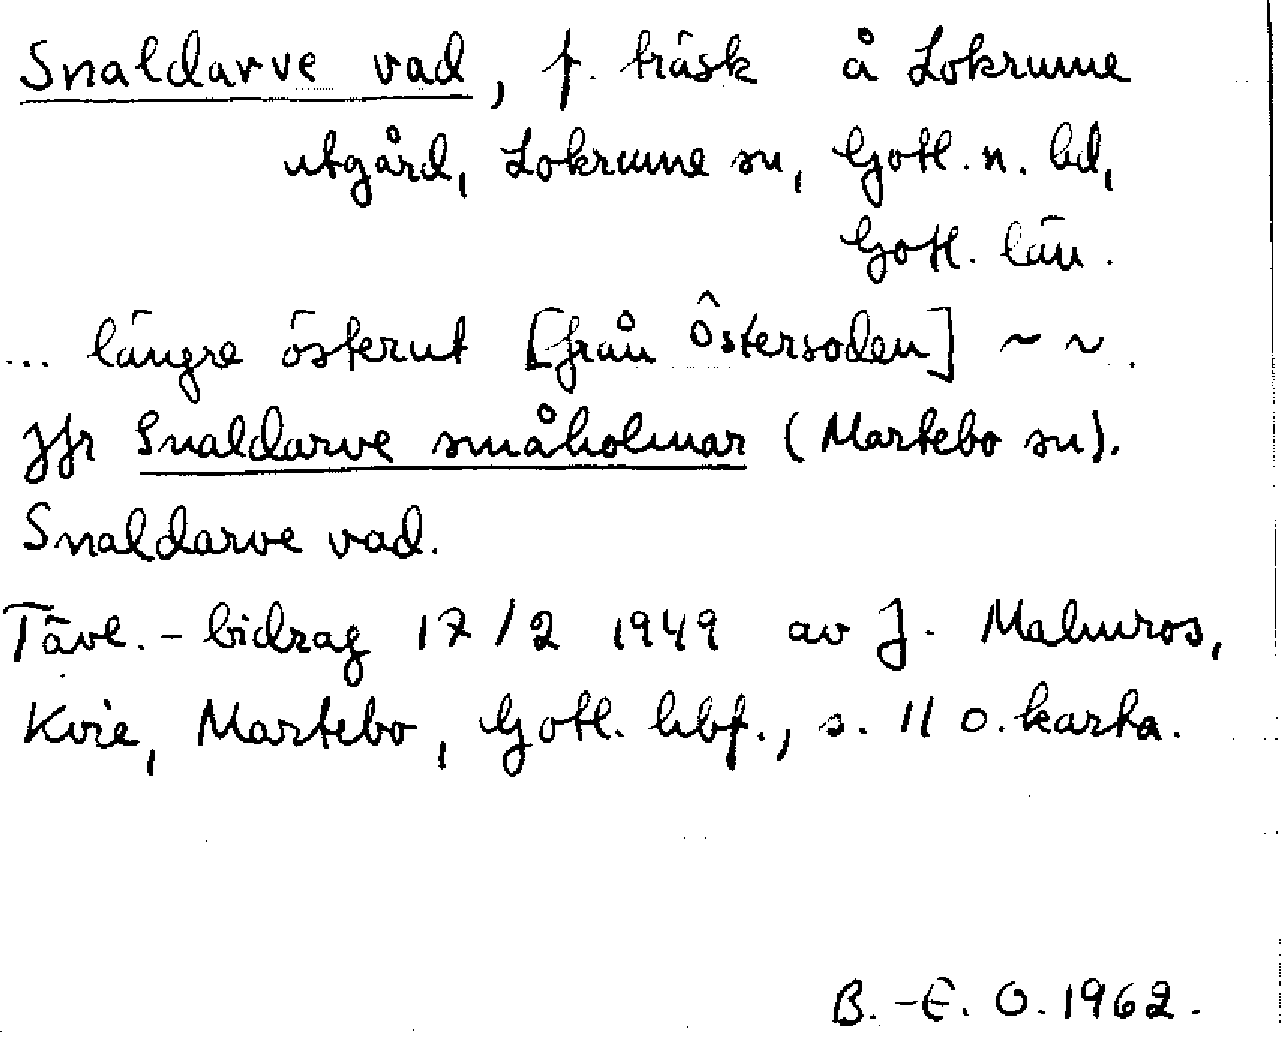 Snaldarve vad, f. träsk å Lokrume
utgård, Lokrume sn, Gotl. n. hd,
Gotl. län.
... längre österut [från Östersoden] ~ ~.
Jfr Snaldarve småholmar (Martebo sn).
Snaldarve vad.
Tävl.-bidrag 17/2 1949 av J. Malmros,
Kvie, Martebo, Gotl. hbf., s. 11 o. karta.
B.-E. O. 1962.